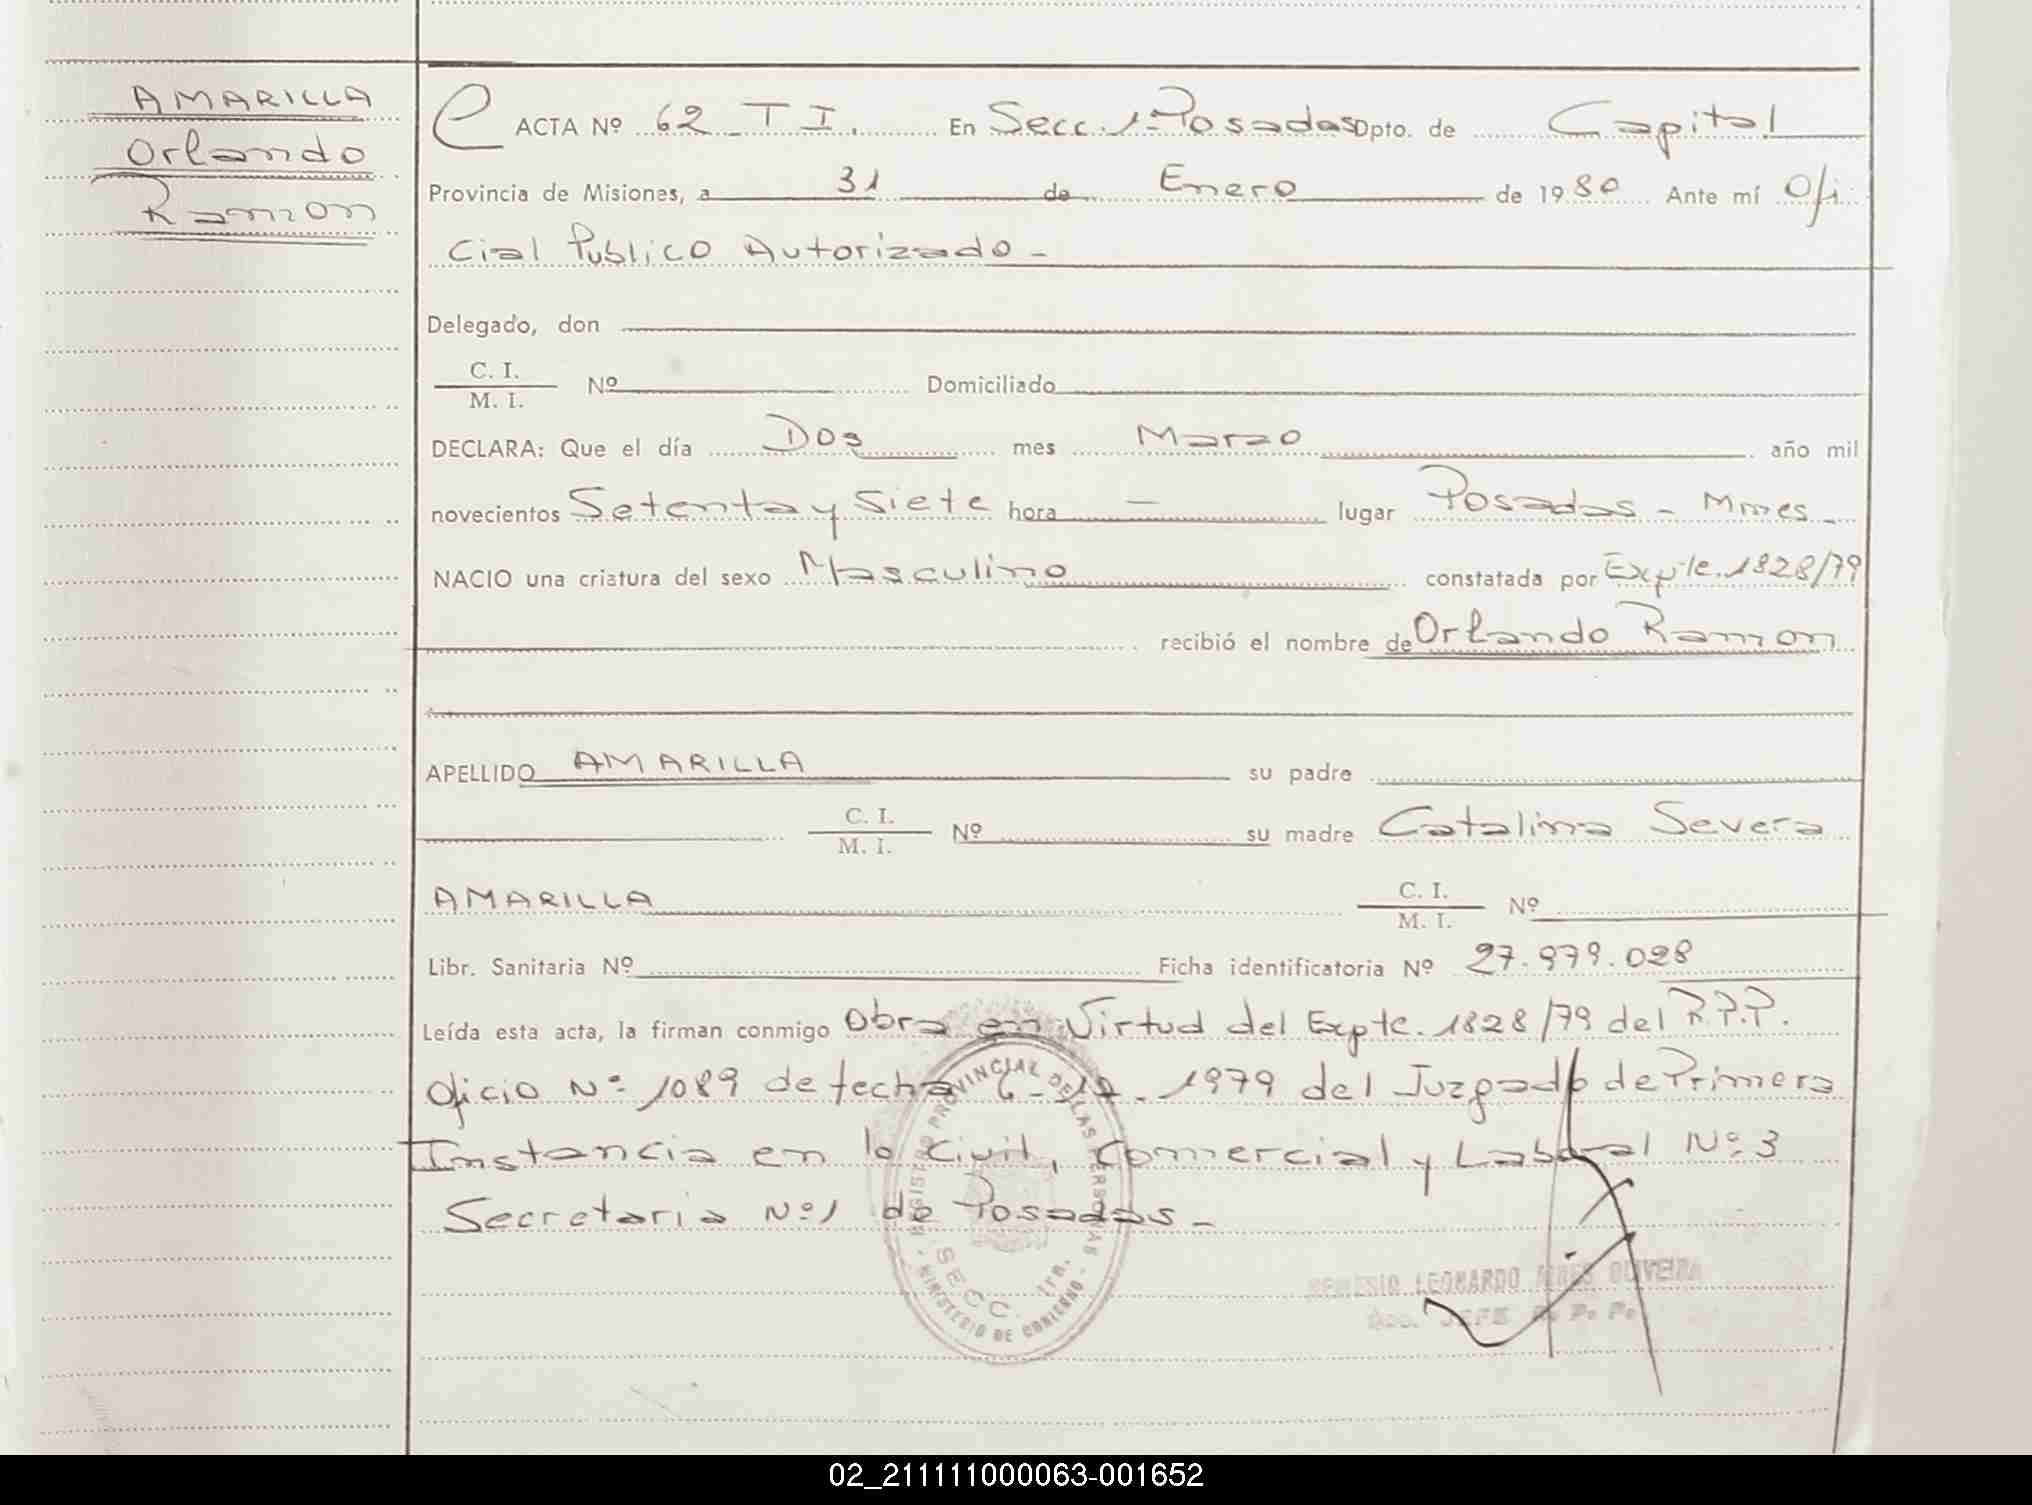 AMARILLA
Orlando
Ramon
e ACTA Nº 62 T I. En Secc. 1ª Posadas Dpto. de Capital
Provincia de Misiones, a 31 de Enero de 1980 Ante mí Ofi
cial Publico Autorizado -
Delegado, don
C. I.
M. I. Nº Domiciliado
DECLARA: Que el día Dos mes Marzo año mil
novecientos Setenta y Siete hora — lugar Posadas - Mnes -
NACIO una criatura del sexo Masculino constatada por Expte. 1828/79
recibió el nombre de Orlando Ramon
APELLIDO AMARILLA su padre
C. I.
M. I. Nº su madre Catalina Severa
AMARILLA C. I.
M. I. Nº
Libr. Sanitaria Nº Ficha identificatoria Nº 27.979.028
Leída esta acta, la firman conmigo Obra en Virtud del Expte. 1828/79 del R.P.P.
Oficio Nº 1089 de fecha 6-12-1979 del Juzgado de Primera
Instancia en lo Civil, Comercial y Laboral Nº 3
Secretaria Nº 1 de Posadas -
REGISTRO PROVINCIAL DE LAS PERSONAS
SECC. 1ra.
MINISTERIO DE GOBIERNO
LEONARDO OLIVEIRA
JEFE R. P. P.
02_211111000063-001652